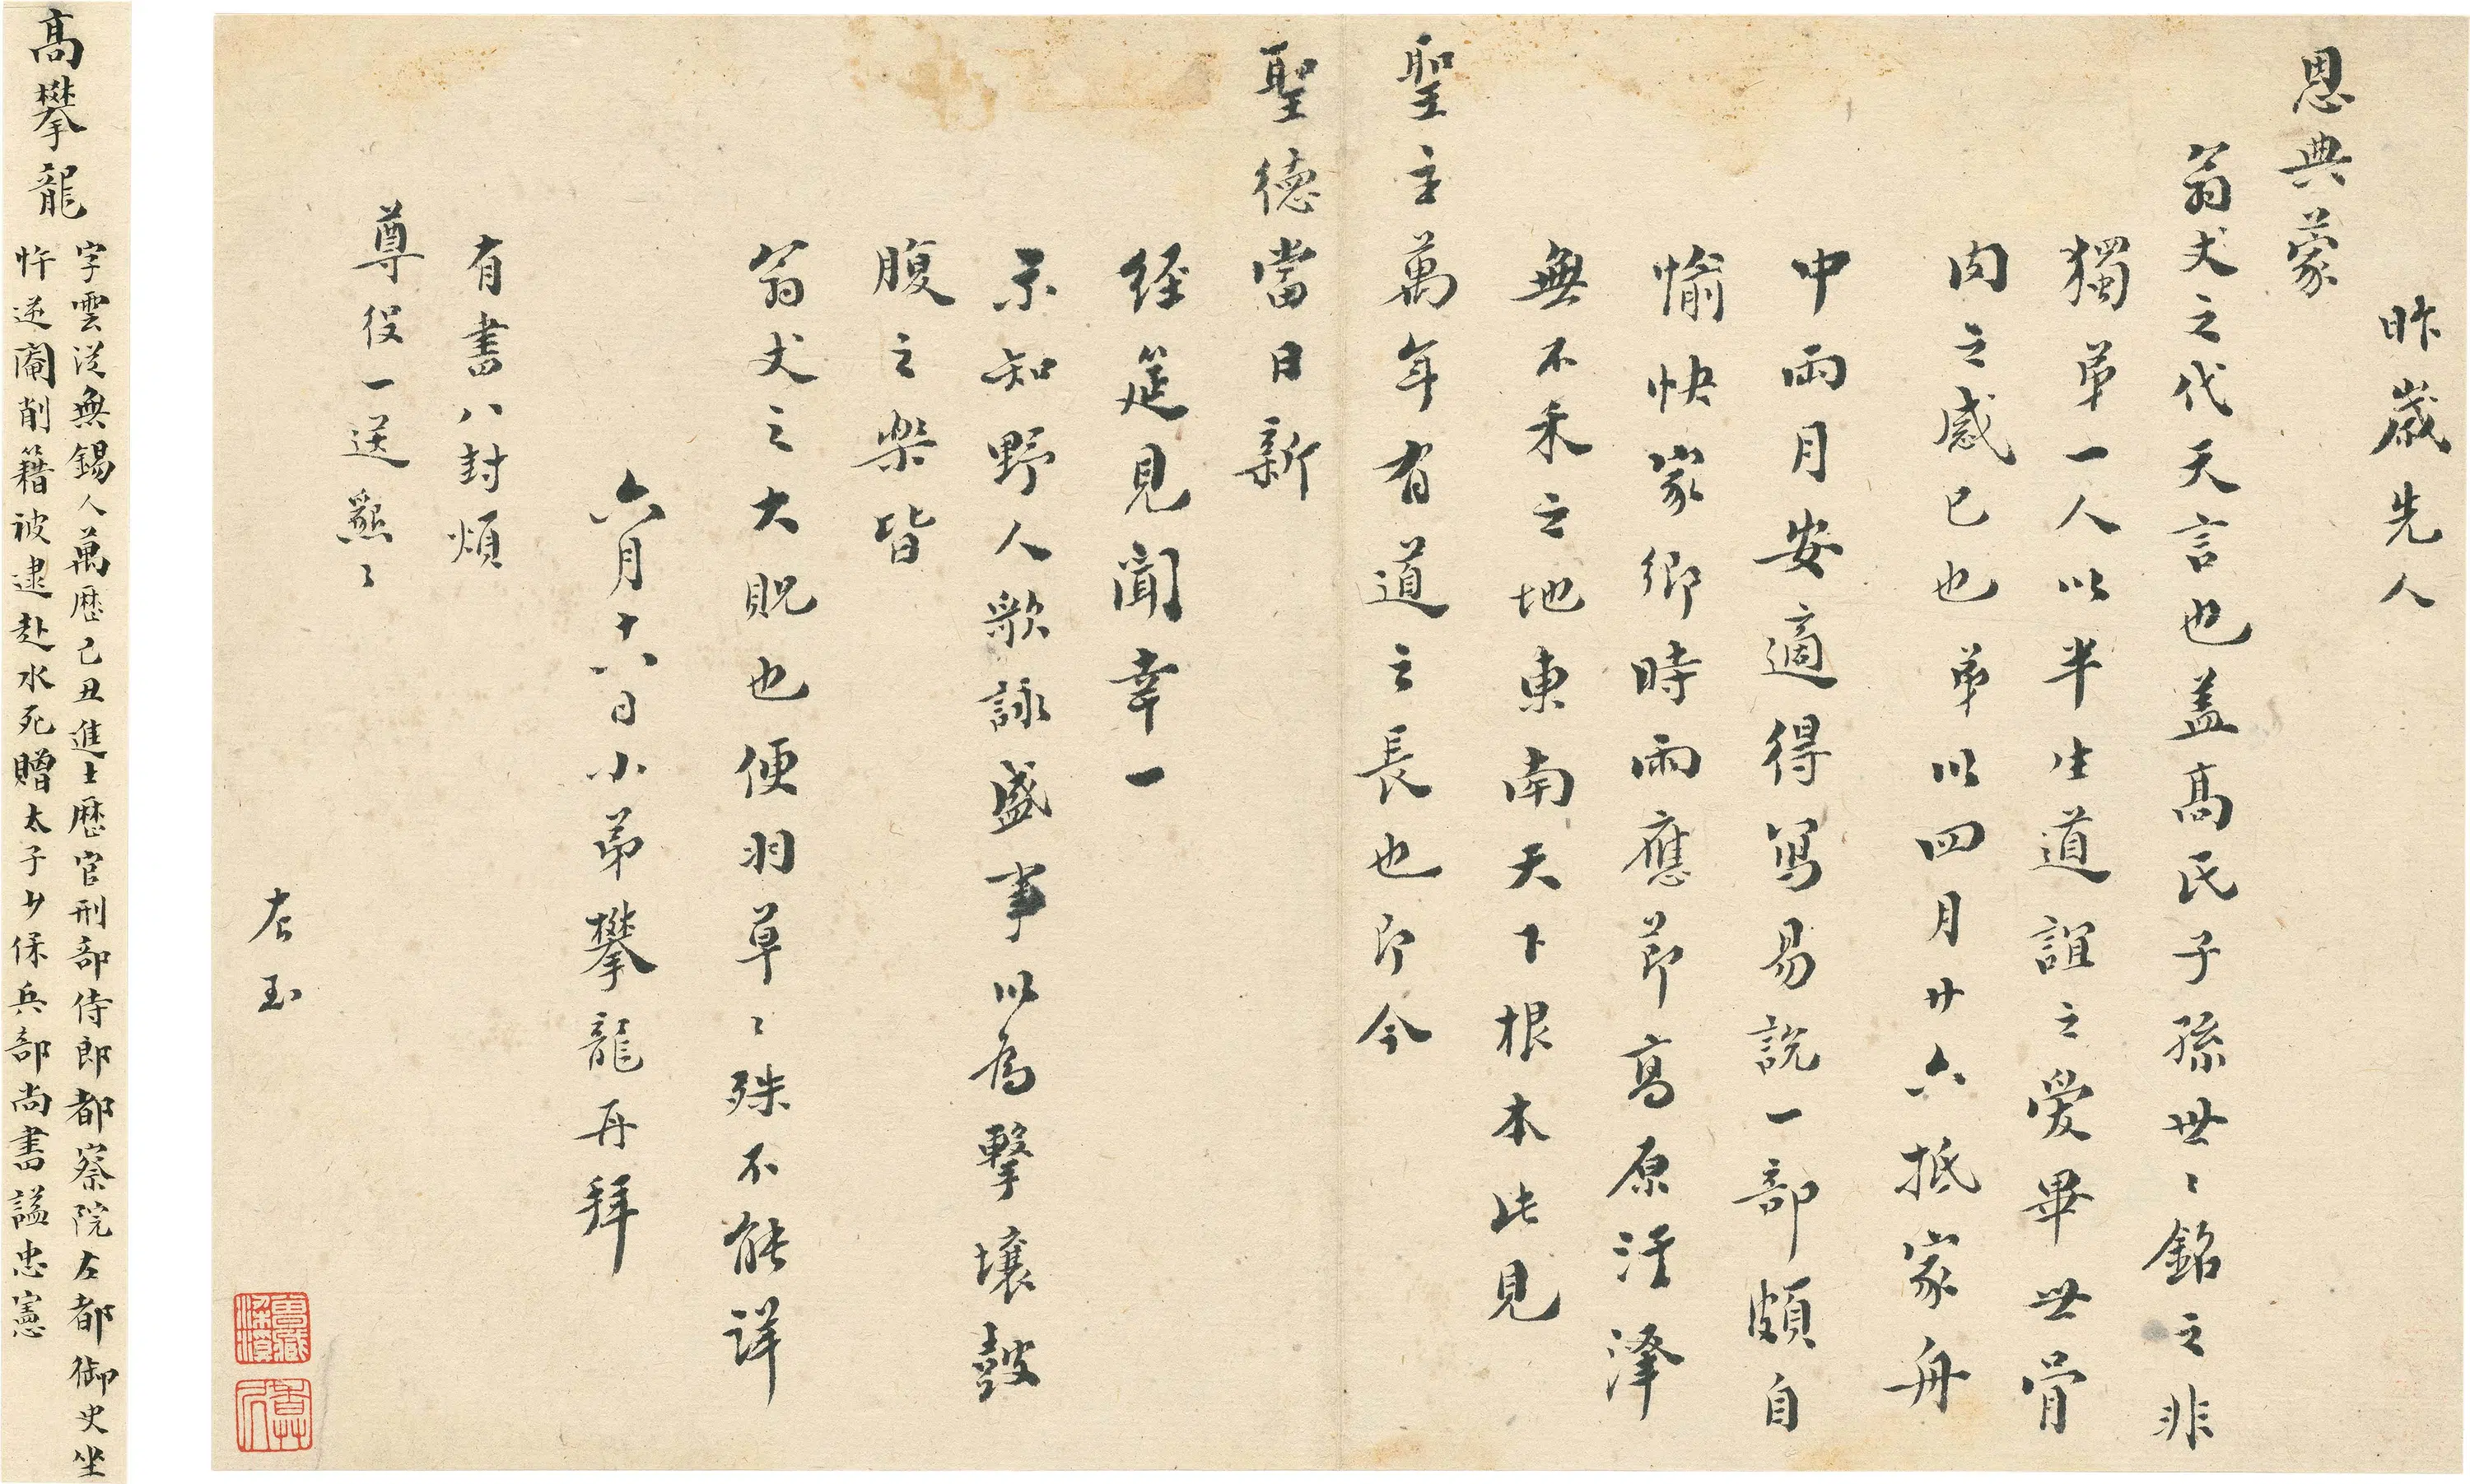 昨歲先人
恩典蒙
翁丈之代天言也蓋高氏子孫世〻銘之非
獨弟一人以半生道誼之愛畢世骨
肉之感已也弟以四月廿六抵家舟
中兩月安適得寫易說一部頗自
愉快家鄉時雨應節高原汙澤
無不禾之地東南天下根本此見
聖主萬年有道之長也即今
聖德當日新
经筵見聞幸一
示知野人歌詠盛事以為擊壤鼓
腹之樂皆
翁丈之大貺也便羽草〻殊不能詳
六月十六日小弟攀龍再拜
有書八封煩
尊役一送懇〻
左玉
高攀龍
字雲從無錫人萬曆己丑進士歷官刑部侍郎都察院左都御史坐
忤逆閹削籍被逮赴水死贈太子少保兵部尚書謚忠憲